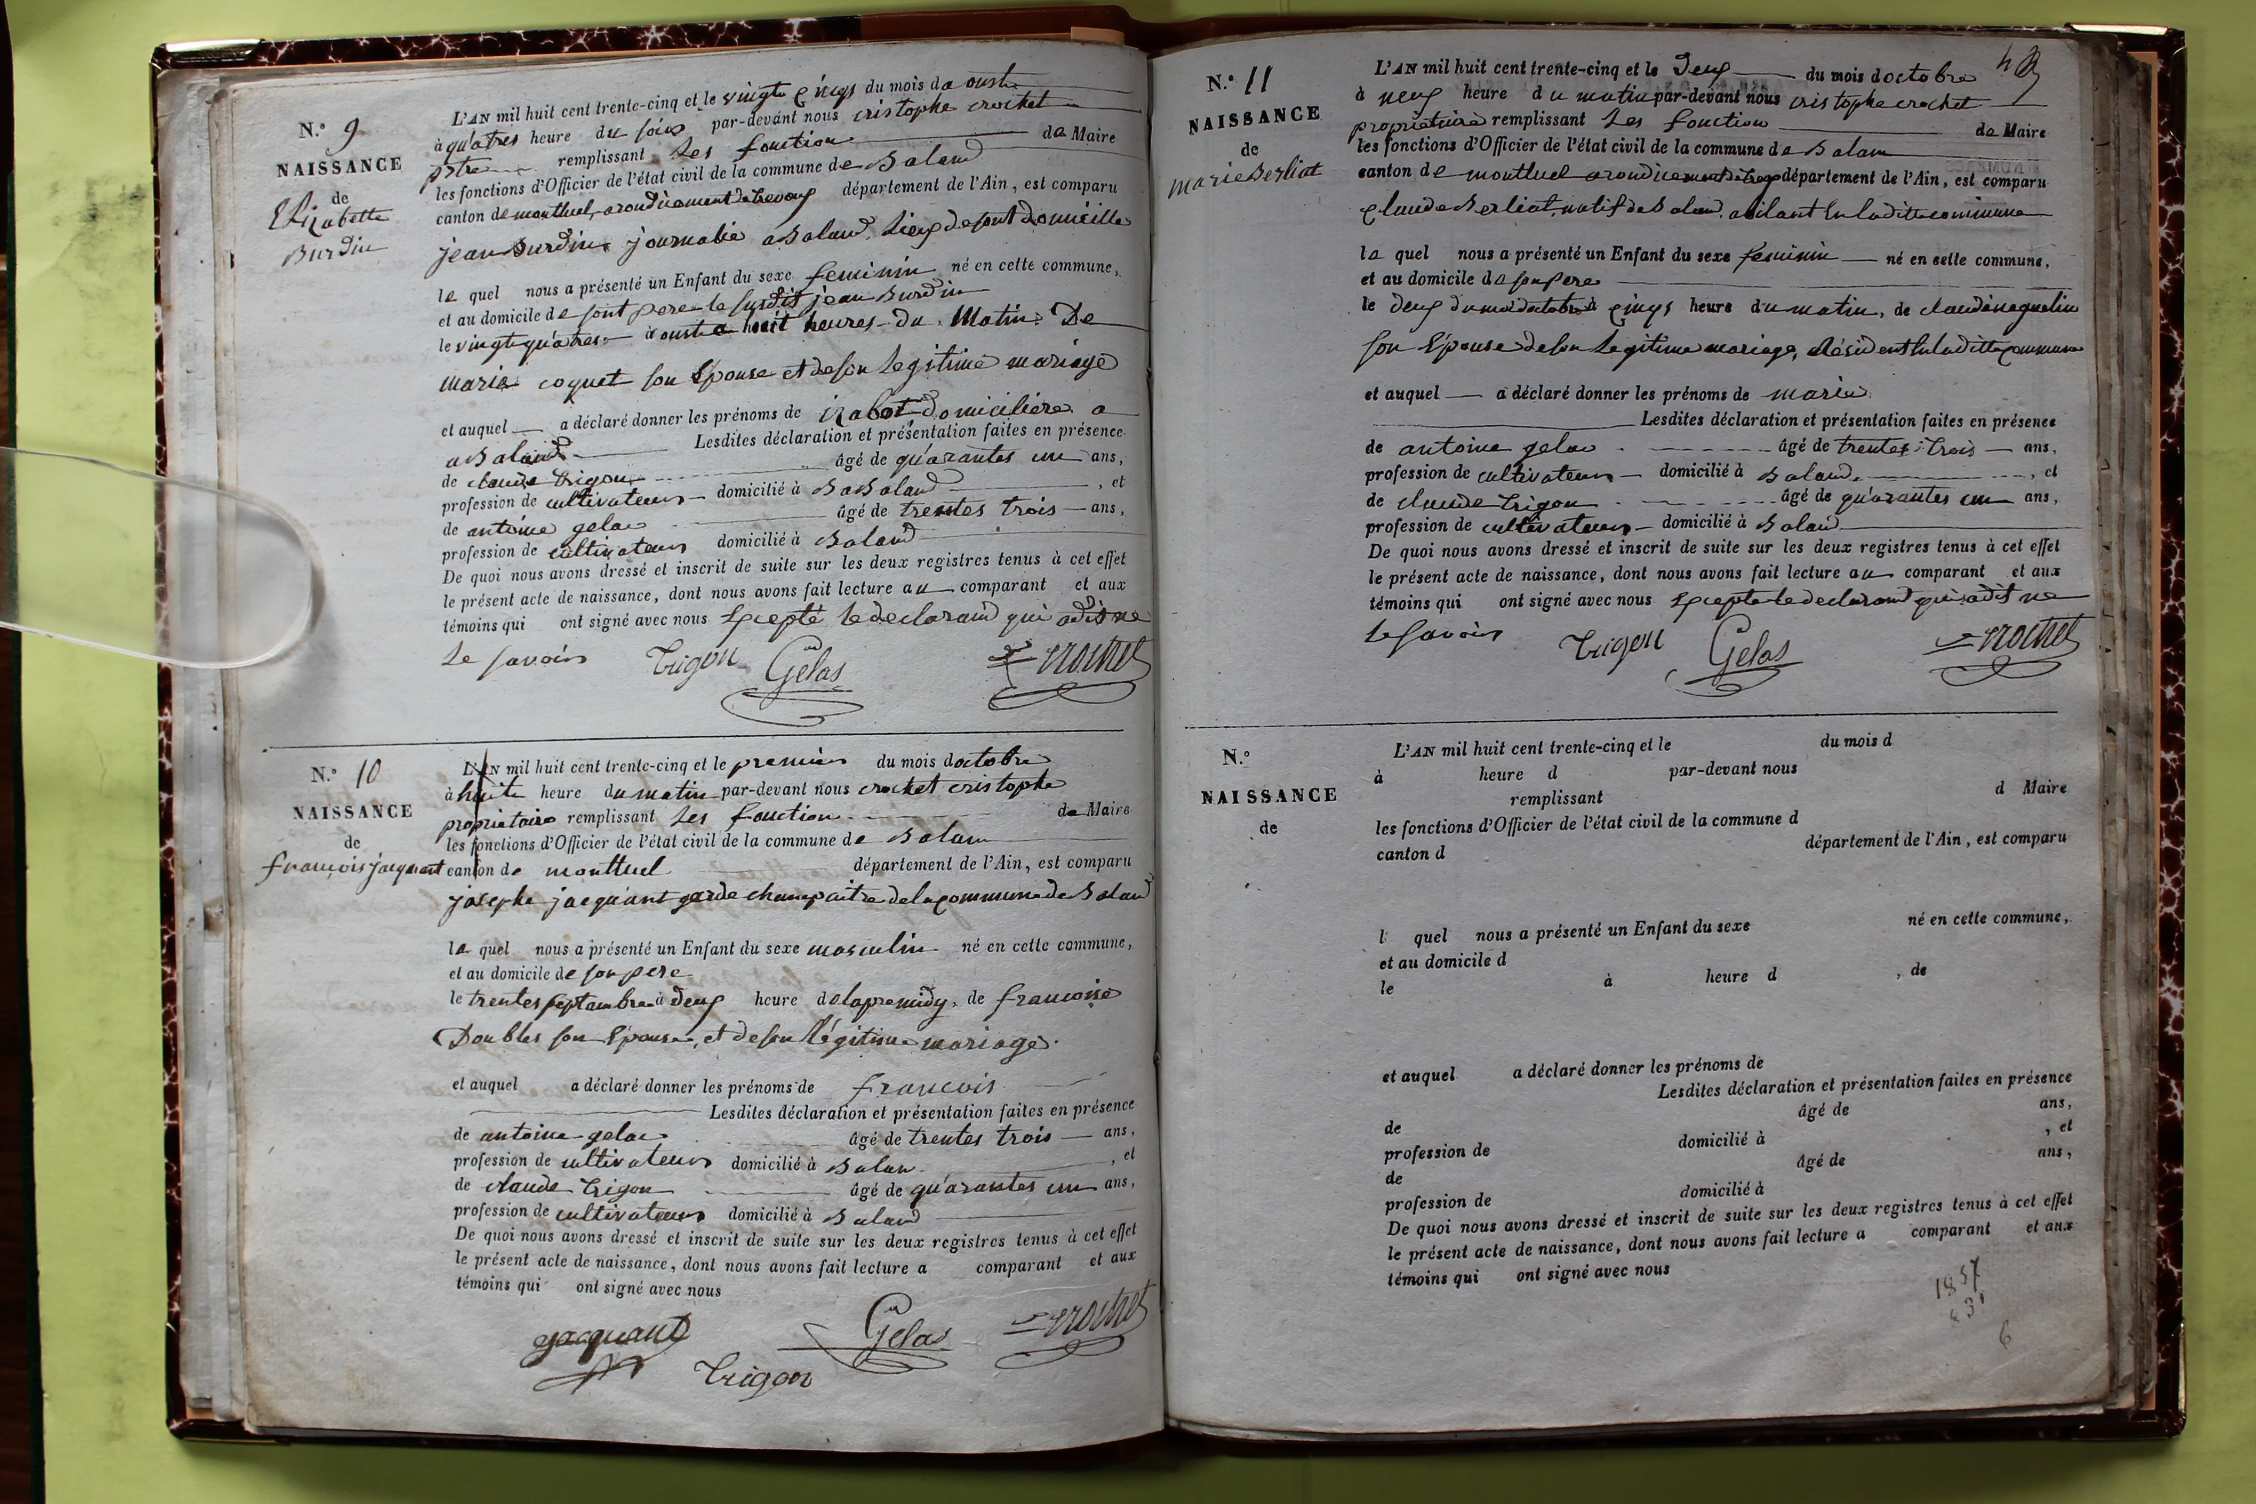 N.° 9
NAISSANCE
de
Elizabette
Burdin
L'AN mil huit cent trente-cinq et le vingte cinqs du mois da ouste
à quatres heure du soire par-devant nous cristophe crochet
remplissant les fonction de Maire
les fonctions d'Officier de l'état civil de la commune de Baland
canton de montluel, arondicement de trevoux département de l'Ain, est comparu
jean Burdin journalié a Baland lieux de sont domicille
le quel nous a présenté un Enfant du sexe feminin né en cette commune,
et au domicile de sont pere le susdit jean Burdin
le vingte quatres a ouste a huit heures du Matin De
marie coquet son Epouse et de son legitime mariage
et auquel a déclaré donner les prénoms de izabet domicilière a
a Baland Lesdites déclaration et présentation faites en présence
de claude trigon âgé de quarantes un ans,
profession de cultivateurs domicilié à Ba Baland , et
de antoine gelac âgé de trentes trois ans,
profession de cultivateurs domicilié à Baland
De quoi nous avons dressé et inscrit de suite sur les deux registres tenus à cet effet
le présent acte de naissance, dont nous avons fait lecture au comparant et aux
témoins qui ont signé avec nous Excepté le declarand qui adit ne
le savoir Trigon Gelas Crochet
N.° 10
NAISSANCE
de
françois jacquant
L'AN mil huit cent trente-cinq et le premier du mois doctobre
à huite heure du matin par-devant nous crochet cristophe
propriétaire remplissant les fonction de Maire
les fonctions d'Officier de l'état civil de la commune de Balan
canton de montluel département de l'Ain, est comparu
josephe jacquant garde champaitre de la commune de Baland
le quel nous a présenté un Enfant du sexe masculin né en cette commune,
et au domicile de son pere
le trentes septambre à deux heure de lapremidy, de françoise
Doubles son Epouse, et de son légitime mariage.
et auquel a déclaré donner les prénoms de francois
Lesdites déclaration et présentation faites en présence
de antoine gelac âgé de trentes trois ans,
profession de cultivateurs domicilié à Balan , et
de claude trigon âgé de quarantes un ans,
profession de cultivateurs domicilié à Baland
De quoi nous avons dressé et inscrit de suite sur les deux registres tenus à cet effet
le présent acte de naissance, dont nous avons fait lecture a comparant et aux
témoins qui ont signé avec nous
jacquant Gelas Crochet
Trigon
N.° 11
NAISSANCE
de
marie Berliat
L'AN mil huit cent trente-cinq et le Deux du mois doctobre
à neuf heure du matin par-devant nous cristophe crochet
proprietaire remplissant les fonction de Maire
les fonctions d'Officier de l'état civil de la commune de Balan
canton de montluel arondicement de trevoux département de l'Ain, est comparu
claude Berliat natif de Baland abitant En la ditte commune
le quel nous a présenté un Enfant du sexe feminin né en cette commune,
et au domicile de son pere
le deux du moi doctobre à cinqs heure du matin, de claudine guelin
son Epouse de son legitime mariage, Résident En la ditte commune
et auquel a déclaré donner les prénoms de marie
Lesdites déclaration et présentation faites en présence
de antoine gelac âgé de trentes trois ans,
profession de cultivateurs domicilié à Baland , et
de claude trigon âgé de quarantes un ans,
profession de cultivateurs domicilié à Baland
De quoi nous avons dressé et inscrit de suite sur les deux registres tenus à cet effet
le présent acte de naissance, dont nous avons fait lecture au comparant et aux
témoins qui ont signé avec nous Excepte le declarand qui adit ne
le savoir Trigon Gelas Crochet
N.°
NAISSANCE
de
L'AN mil huit cent trente-cinq et le du mois d
à heure d par-devant nous
remplissant d Maire
les fonctions d'Officier de l'état civil de la commune d
canton d département de l'Ain, est comparu
l quel nous a présenté un Enfant du sexe né en cette commune,
et au domicile d
le à heure d , de
et auquel a déclaré donner les prénoms de
Lesdites déclaration et présentation faites en présence
de âgé de ans,
profession de domicilié à , et
de âgé de ans,
profession de domicilié à
De quoi nous avons dressé et inscrit de suite sur les deux registres tenus à cet effet
le présent acte de naissance, dont nous avons fait lecture a comparant et aux
témoins qui ont signé avec nous
6